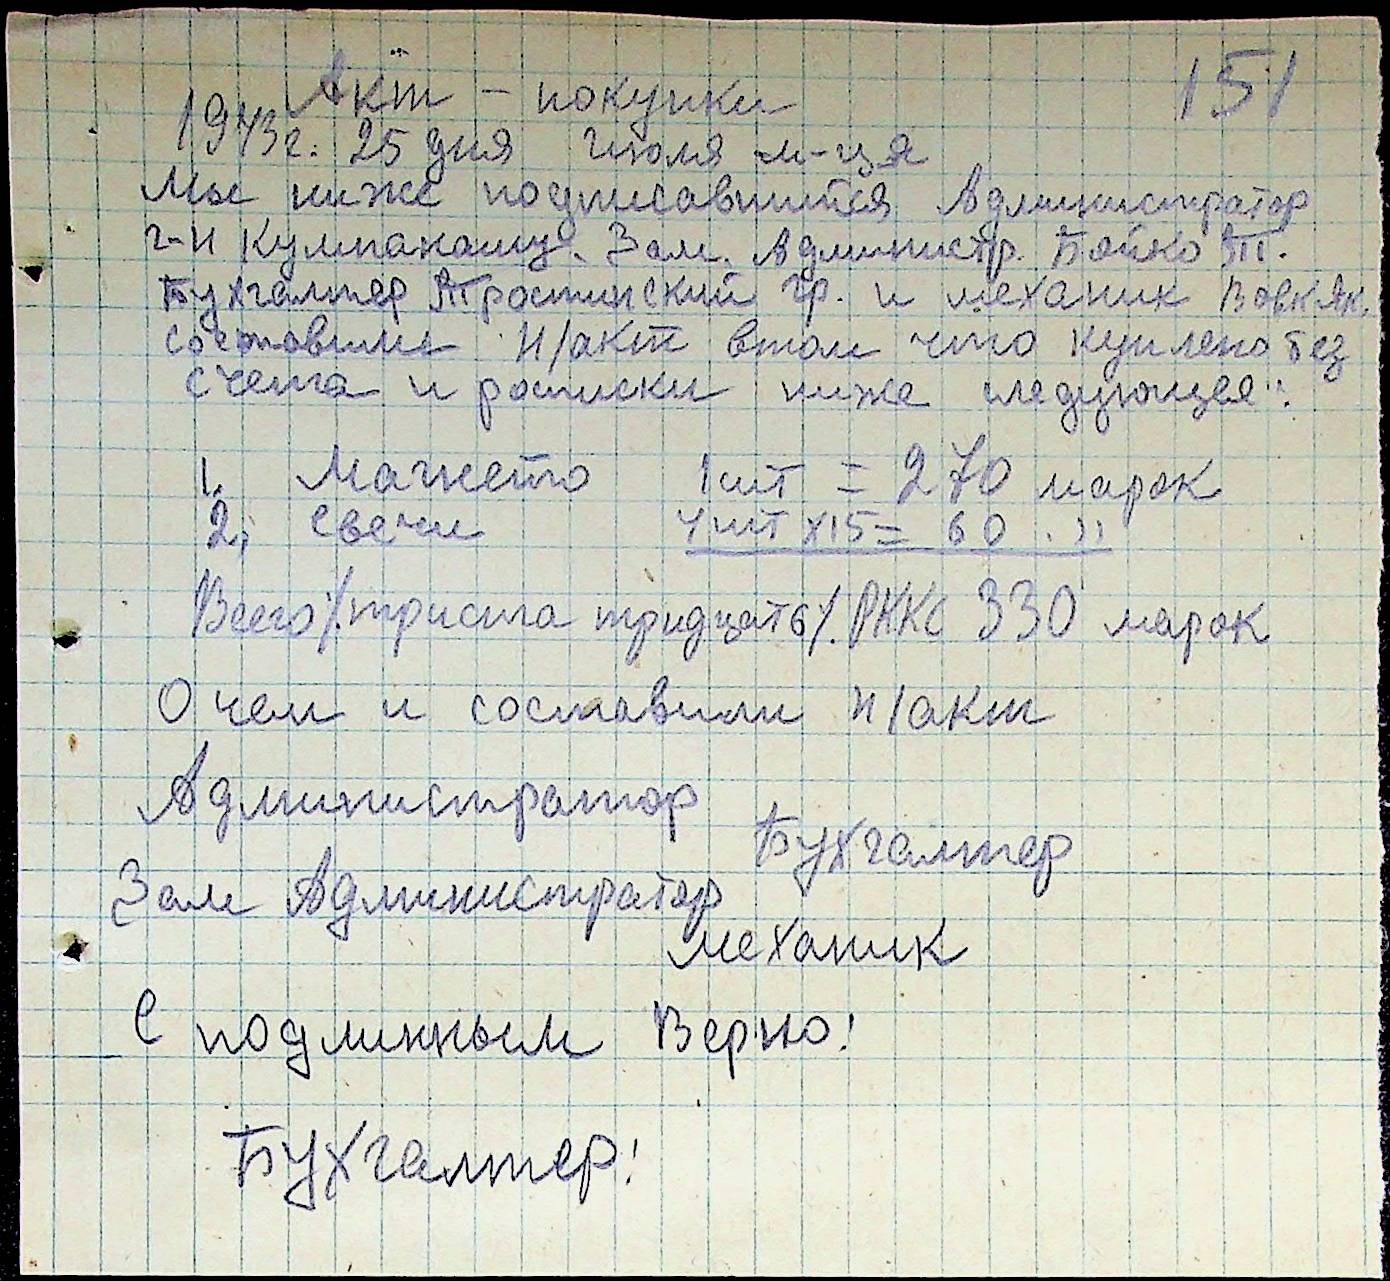 151
Акт - покупки
1943г. 25 дня Июля м-ця
Мы ниже подписавшиися Администратор
г-н Зам. Администр. Бойко Т.
Бухгалтер Тростинский гр. и механик Вовк Як.
составили н/акт втом что куплено без
счета и росписки ниже следующея:
1. Магнето 1шт = 270 марок
2, Свечи 4шт х15= 60 . "
Всего /.триста тридцать/. РККС 330 марок
О чем и составили н/акт
Администратор
Бухгалтер
Зам Администратор
механик
С подлинным Верно!
Бухгалтер!